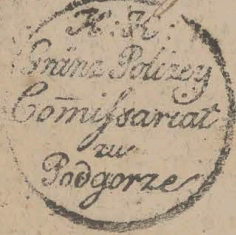 K: K:
Gränz Polizey
Com̅iſsariat
zu
Podgorze